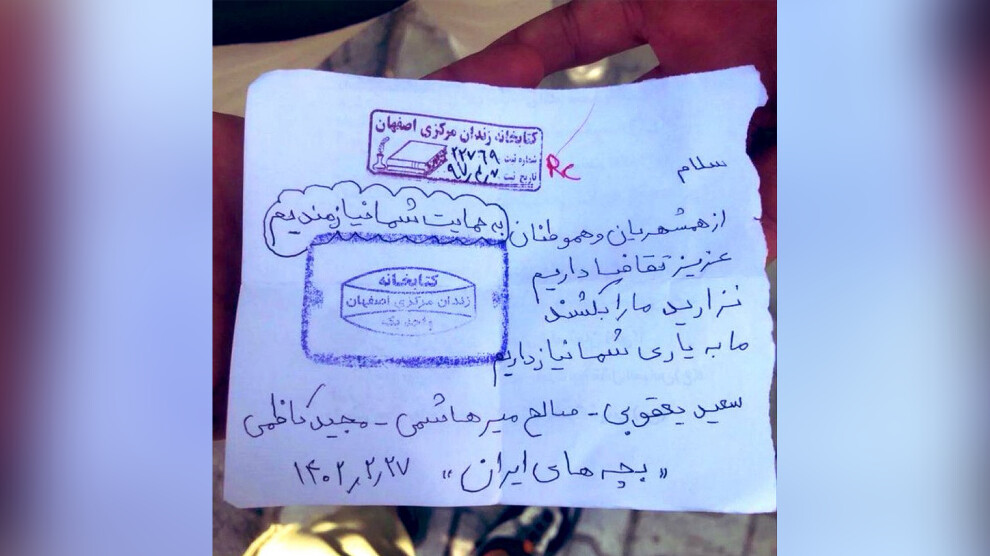 کتابخانه زندان مرکزی اصفهان
شماره ثبت ۲۲۷۶۹
تاریخ ثبت ۹۷٫۴٫۷
RC
سلام
از همشهریان و هموطنان
به حمایت شما نیازمندیم
عزیز تقاضا داریم
نزارید ما را بکشند
ما به یاری شما نیاز داریم
کتابخانه
زندان مرکزی اصفهان
واحد یک
سعید یعقوبی - صالح میرهاشمی - مجید کاظمی
«بچه های ایران» ۱۴۰۲٫۲٫۲۷